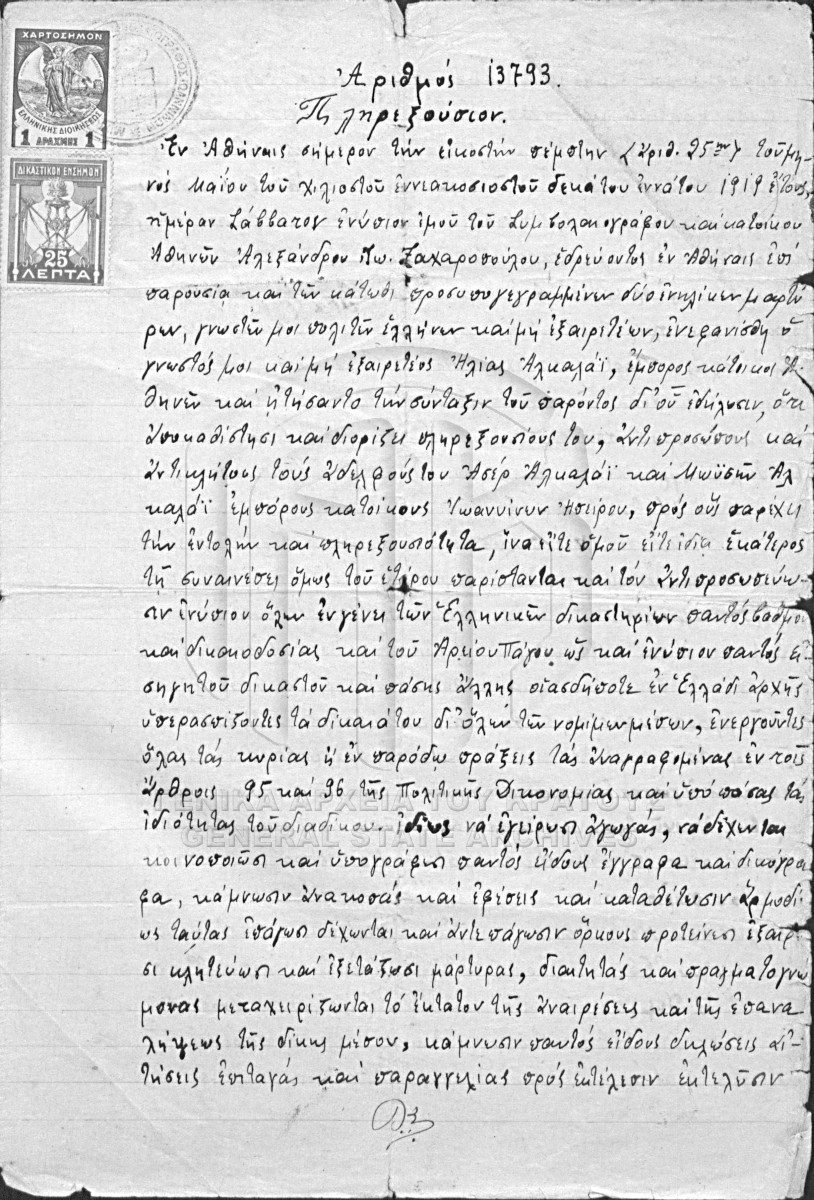 ΧΑΡΤΟΣΗΜΟΝ
ΕΛΛΗΝΙΚΗΣ ΔΙΟΙΚΗΣΕΩΣ
1 ΔΡΑΧΜΗΣ 1
ΔΙΚΑΣΤΙΚΟΝ ΕΝΣΗΜΟΝ
25
ΛΕΠΤΑ
Ἀριθμός 13793.
Πληρεξούσιον.
Ἐν Ἀθήναις σήμερον τήν εἰκοστήν πέμπτην (ἀριθ. 25ην) τοῦ μη-
νός Μαΐου τοῦ χιλιοστοῦ ἐννιακοσιοστοῦ δεκάτου ἐννάτου 1919 ἔτους,
ἡμέραν Σάββατον ἐνώπιον ἐμοῦ τοῦ Συμβολαιογράφου καί κατοίκου
Ἀθηνῶν Ἀλεξάνδρου Ἰω. Ζαχαροπούλου, ἑδρεύοντος ἐν Ἀθήναις ἐπί
παρουσίᾳ καί τῶν κάτωθι προσυπογεγραμμένων δύο ἐνηλίκων μαρτύ
ρων, γνωστῶν μοι πολιτῶν ἑλλήνων καί μή ἐξαιρετέων, ἐνεφανίσθη ὁ
γνωστός μοι καί μή ἐξαιρετέος Ἠλίας Ἀλκαλάϊ, ἔμπορος κάτοικος Ἀ-
θηνῶν καί ᾐτήσαντο τήν σύνταξιν τοῦ παρόντος δι' οὗ ἐδήλωσεν, ὅτι
ἀποκαθίστησι καί διορίζει πληρεξουσίους του, ἀντιπροσώπους καί
ἀντικλήτους τούς ἀδελφούς του Ἀσέρ Ἀλκαλάϊ καί Μωϋσήν Ἀλ
καλάϊ ἐμπόρους κατοίκους Ἰωαννίνων Ἠπείρου, πρός οὕς παρέχει
τήν ἐντολήν καί πληρεξουσιότητα, ἵνα εἴτε ὁμοῦ εἴτε ἰδίᾳ ἑκάτερος
τῇ συναινέσει ὅμως τοῦ ἑτέρου παρίστανται καί τόν ἀντιπροσωπεύω-
σιν ἐνώπιον ὅλων ἐν γένει τῶν Ἑλληνικῶν δικαστηρίων παντός βαθμοῦ
καί δικαιοδοσίας καί τοῦ Ἀρείου Πάγου ὡς καί ἐνώπιον παντός εἰ
σηγητοῦ δικαστοῦ καί πάσης ἄλλης οἱασδήποτε ἐν Ἑλλάδι ἀρχῆς
ὑπερασπίζοντες τά δίκαιά του δι' ὅλων τῶν νομίμων μέσων, ἐνεργοῦντες
ὅλας τάς κυρίας ἤ ἐν παρόδῳ πράξεις τάς ἀναγραφομένας ἐν τοῖς
ἄρθροις 95 καί 96 τῆς Πολιτικῆς Δικονομίας καί ὑπό πάσας τάς
ἰδιότητας τοῦ διαδίκου. ἰδίως νά ἐγείρωσι ἀγωγάς, νά δέχωνται
κοινοποιῶσι καί ὑπογράφωσι παντός εἴδους ἔγγραφα καί δικόγρα
φα, κάμνωσιν ἀνακοπάς καί ἐφέσεις καί καταθέτωσιν ἁρμοδί-
ως ταύτας ἐπάγωσι δέχωνται καί ἀντεπάγωσιν ὅρκους προτείνωσι ἐξαιρέ
σι κλητεύωσι καί ἐξετάζωσι μάρτυρας, διαιτητάς καί πραγματογνώ
μονας μεταχειρίζωνται τό ἔκτατον τῆς ἀναιρέσεως καί τῆς ἐπανα
λήψεως τῆς δίκης μέσον, κάμνωσιν παντός εἴδους δηλώσεις αἰ-
τήσεις ἐπιταγάς καί παραγγελίας πρός ἐκτέλεσιν ἐκτελῶσιν
ΓΕΝΙΚΑ ΑΡΧΕΙΑ ΤΟΥ ΚΡΑΤΟΥΣ
GENERAL STATE ARCHIVES